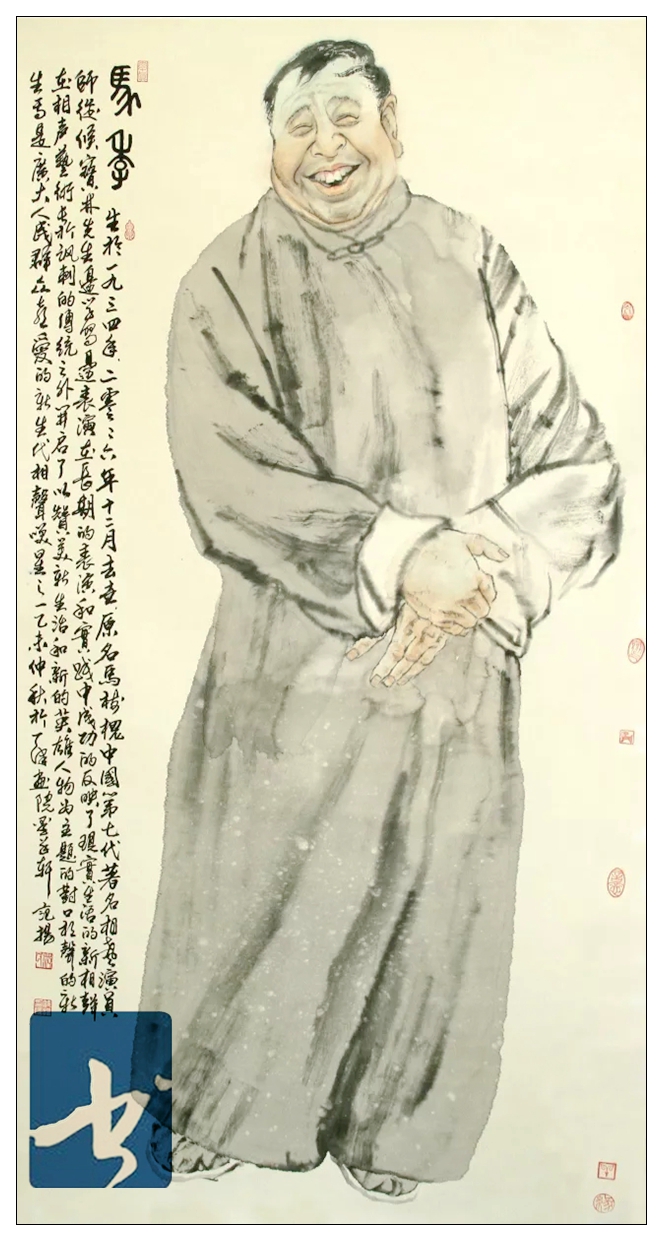 馬季
生於一九三四年二零零六年十二月去世原名馬樹槐中國第七代著名相聲演員
師從候寶林先生邊學習邊表演在長期的表演和實踐中成功的反映了現實生活的新相聲
在相声藝術長於諷刺的傳統之外开启了以贊美新生活和新的英雄人物为主題的對口相聲的新
生馬是廣大人民群众喜愛的新生代相聲笑星之一乙未仲秋於
畫院墨 軒 范揚
书